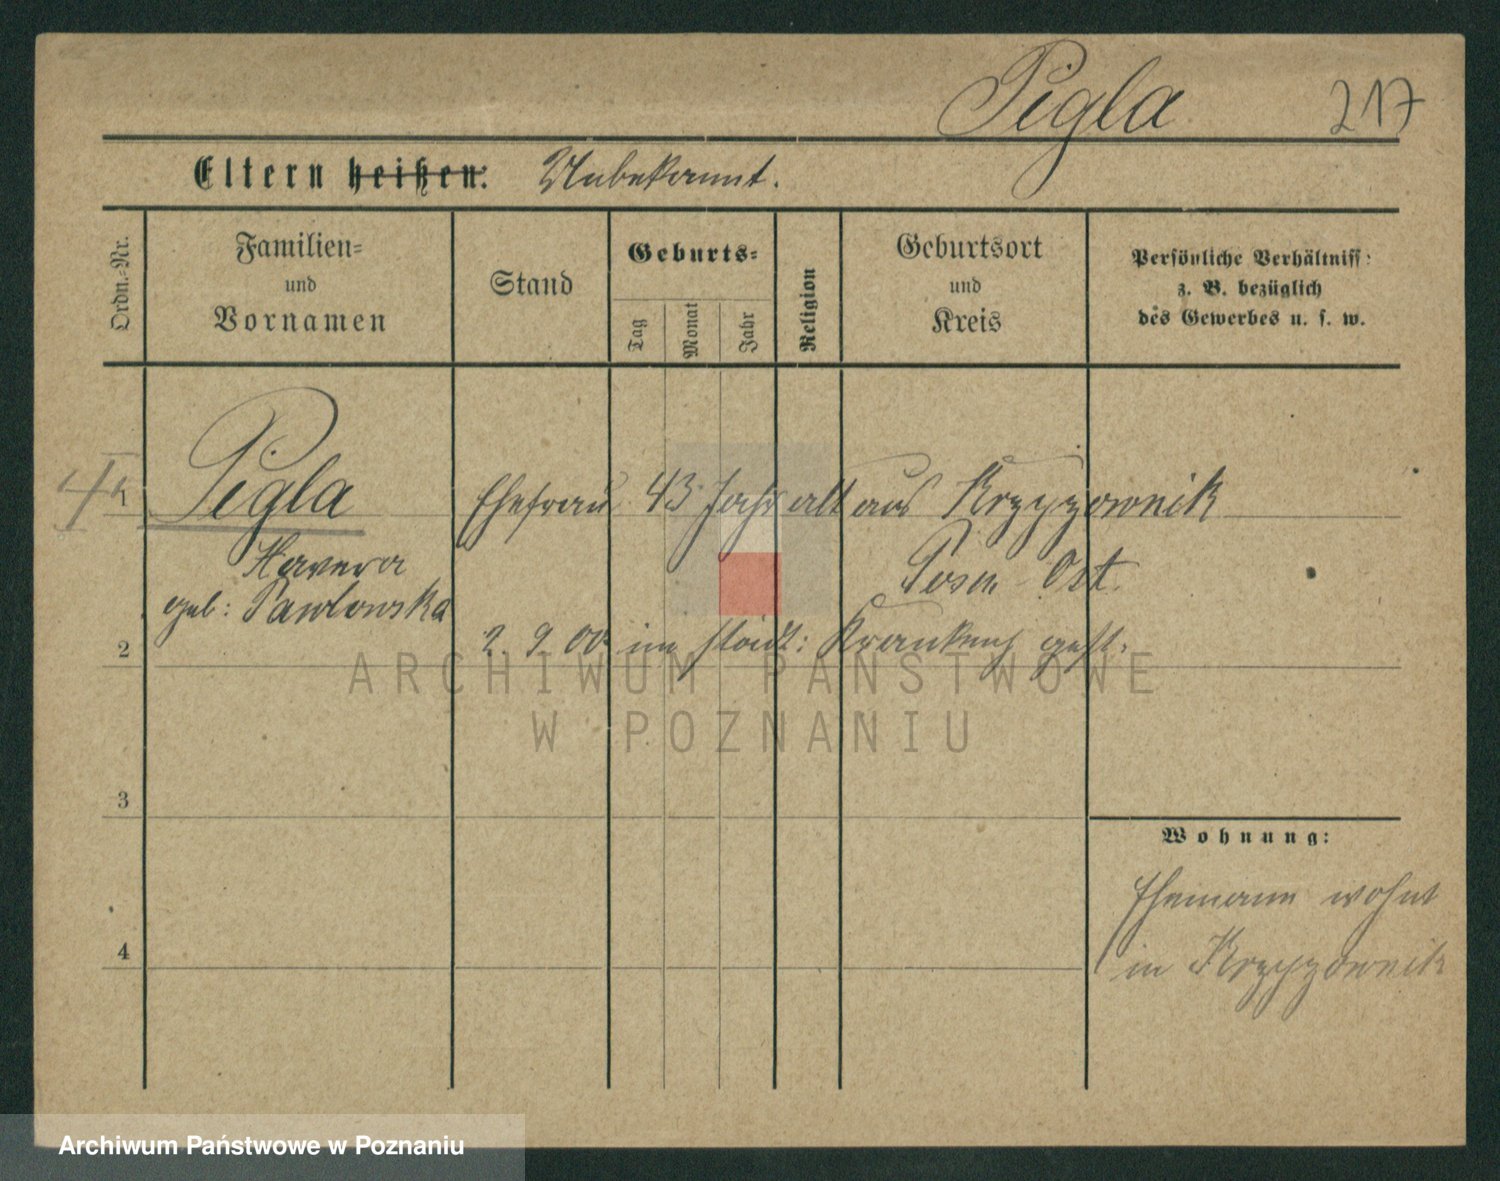 Pigla 217
Eltern heißen: Unbekannt.
Ordn.-Nr.
Familien-
und
Vornamen
Stand
Geburts-
Tag
Monat
Jahr
Religion
Geburtsort
und
Kreis
Persönliche Verhältniss:
z. B. bezüglich
des Gewerbes u. s. w.
1 Pigla Ehefrau 43 Jahr alt aus Krzyzownik
Xavera Posen Ost.
geb: Pawlowska
2 2. 9. 00 im städt: Krankenh gest.
3
Wohnung:
Ehemann wohnt
4 in Krzyzownik
ARCHIWUM PAŃSTWOWE
W POZNANIU
Archiwum Państwowe w Poznaniu